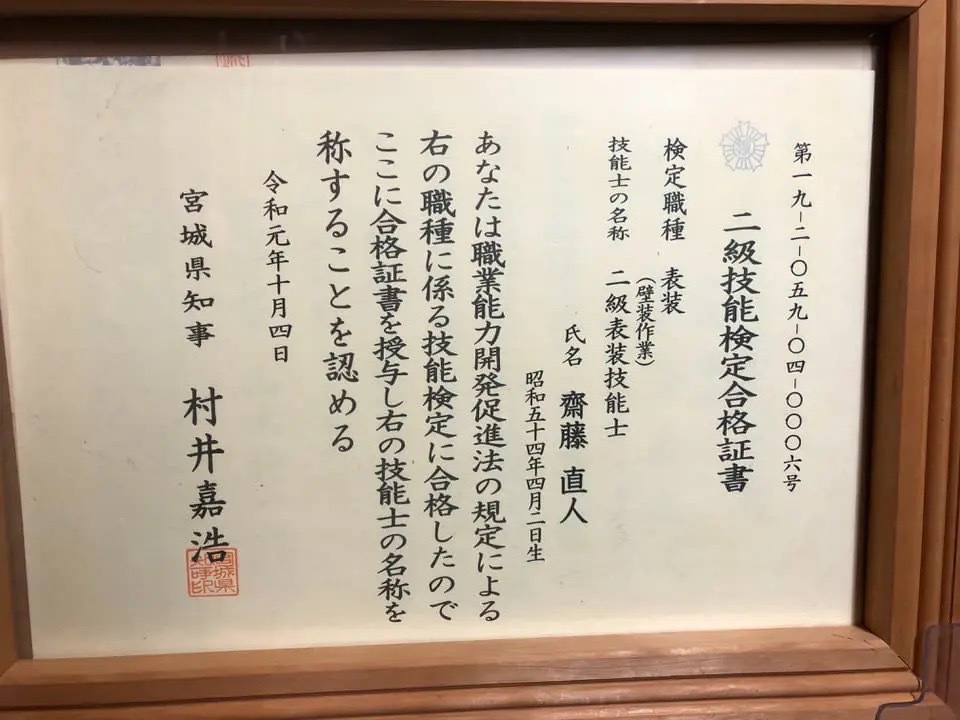 第一九-二-〇五九-〇四-〇〇〇六号
二級技能検定合格証書
検定職種 表装
(壁装作業)
技能士の名称 二級表装技能士
氏名 齋藤 直人
昭和五十四年四月二日生
あなたは職業能力開発促進法の規定による
右の職種に係る技能検定に合格したので
ここに合格証書を授与し右の技能士の名称を
称することを認める
令和元年十月四日
宮城県知事 村井嘉浩